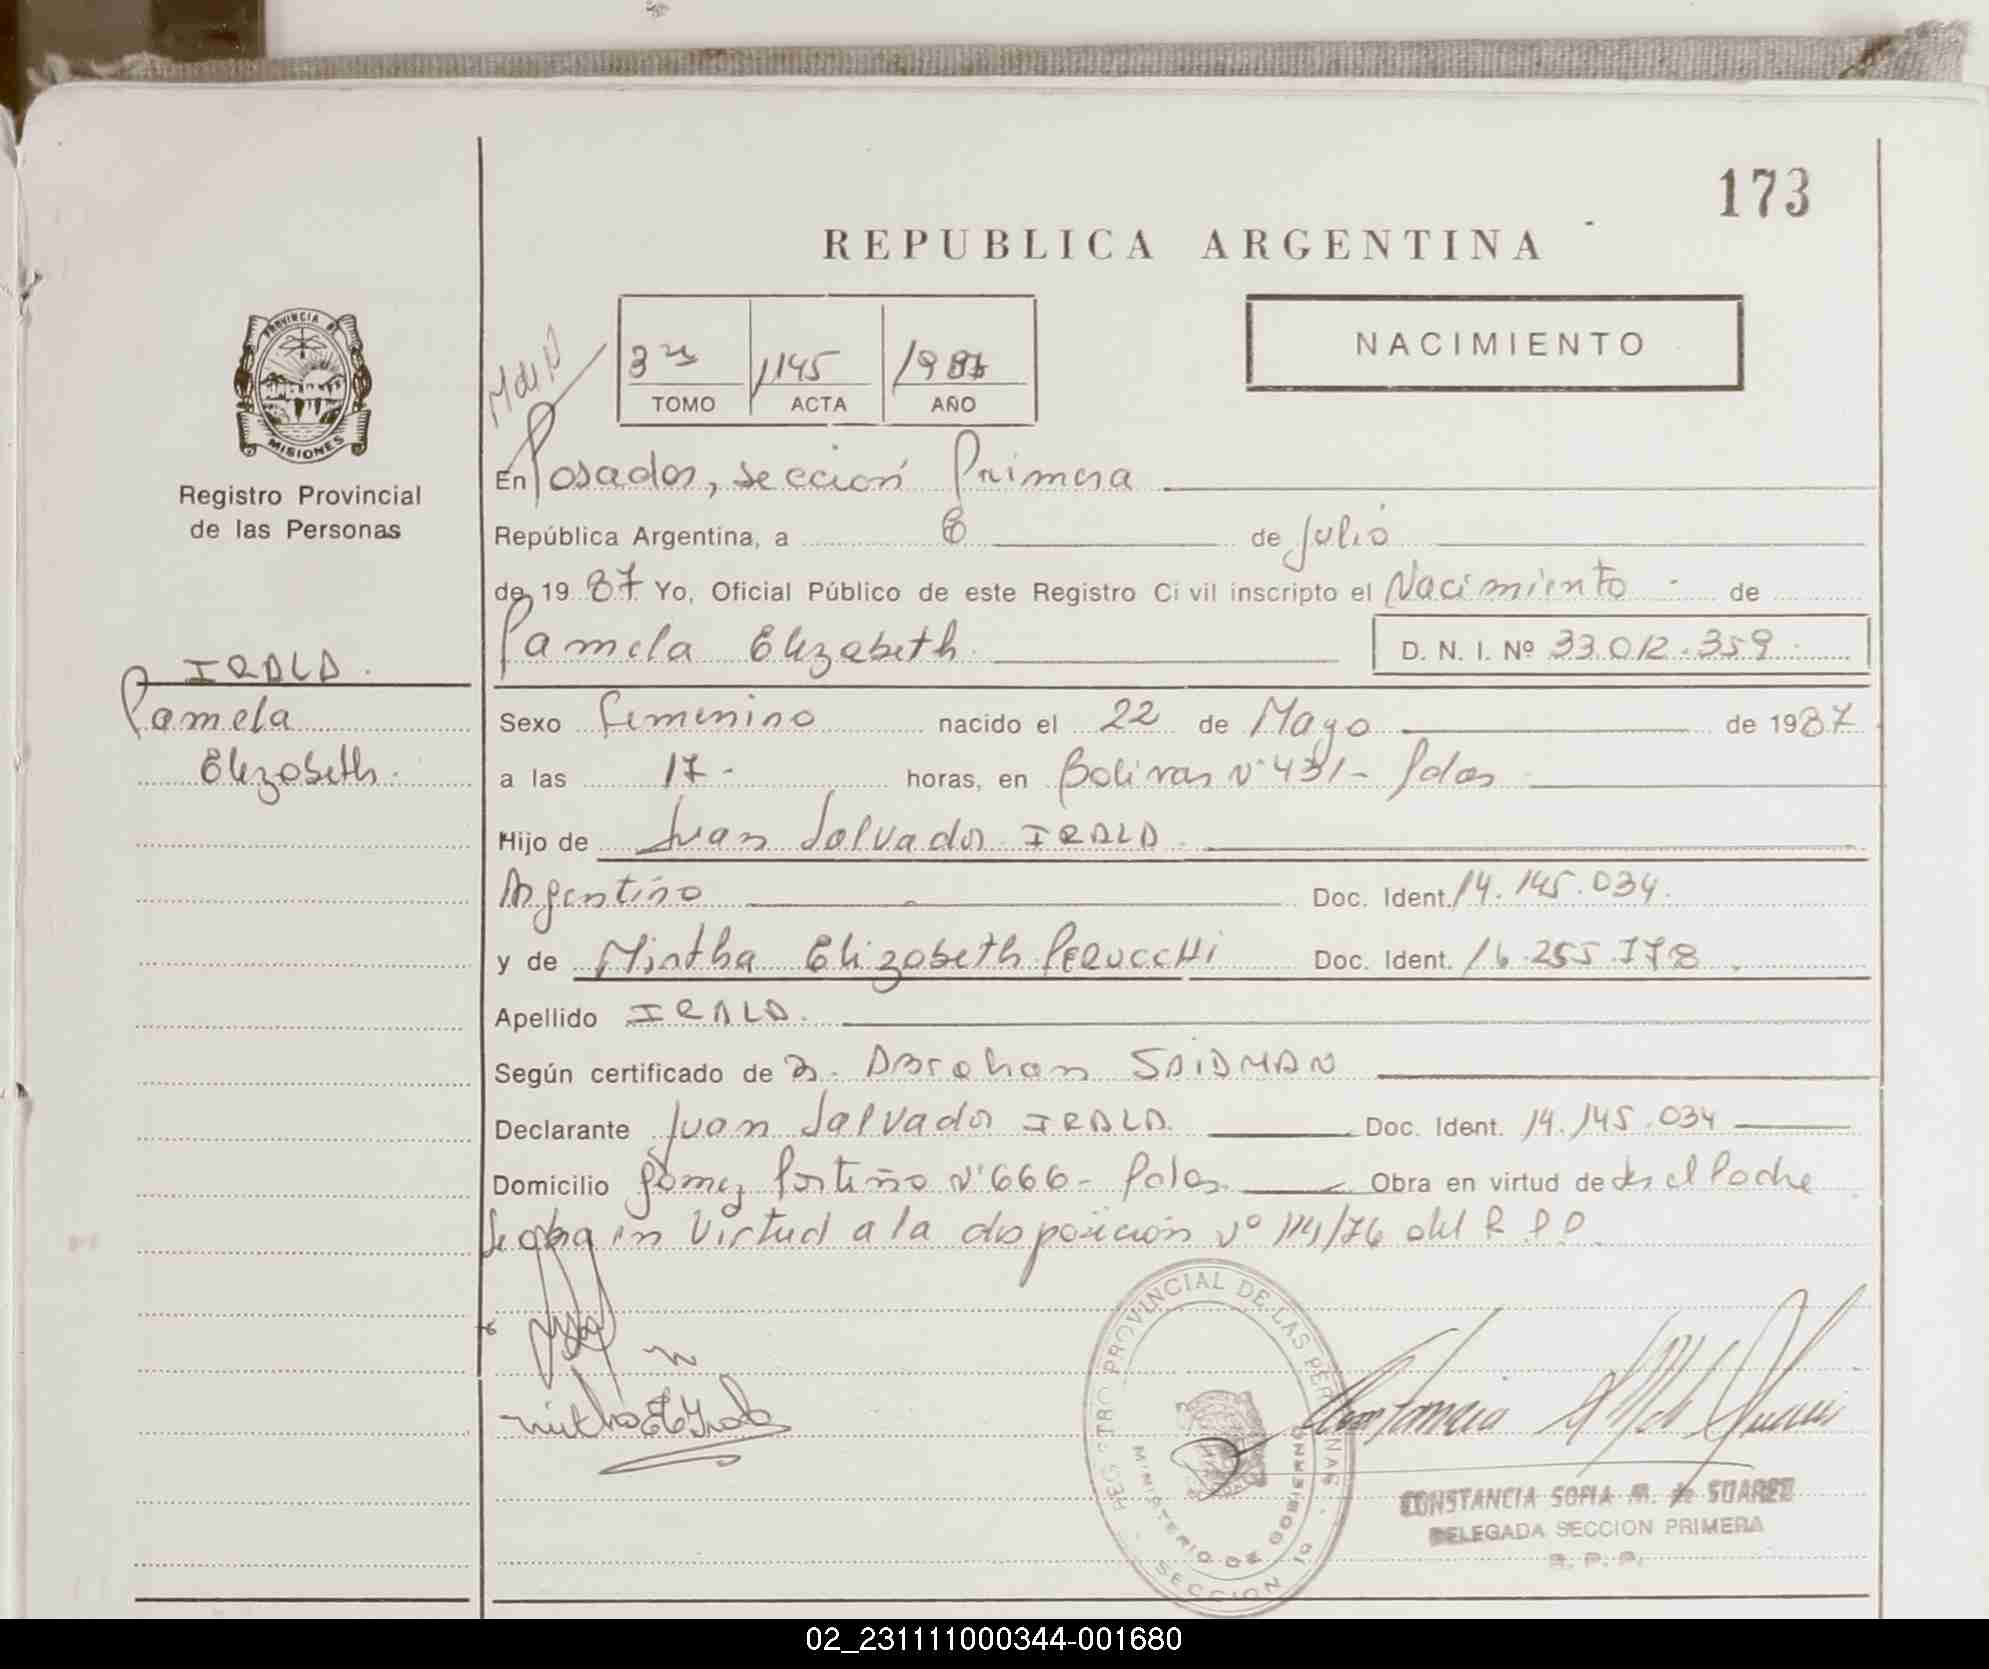 173
REPUBLICA ARGENTINA
PROVINCIA DE
MISIONES
Registro Provincial
de las Personas
M de N
3ro 1145 1987
TOMO ACTA AÑO
NACIMIENTO
En Posadas, sección Primera
República Argentina, a 8 de Julio
de 1987 Yo, Oficial Público de este Registro Civil inscripto el Nacimiento de
Pamela Elizabeth D. N. I. Nº 33.012.359
IRALA.
Pamela
Elizabeth.
Sexo femenino nacido el 22 de Mayo de 1987
a las 17- horas, en Bolivar Nº 431- Pdas
Hijo de Juan Salvador IRALA
Argentino Doc. Ident. 14.145.034.
y de Mirtha Elizabeth PERUCCHI Doc. Ident. 16.255.778
Apellido IRALA.
Según certificado de Dr. Abraham SAIDMAN
Declarante Juan Salvador IRALA. Doc. Ident. 14.145.034
Domicilio Gomez Portiño Nº 666- Pdas. Obra en virtud de ser el Padre
Se obra en Virtud a la disposición Nº 114/76 del R.P.P.
REGISTRO PROVINCIAL DE LAS PERSONAS
MINISTERIO DE GOBIERNO
SECCION 1º
CONSTANCIA SOFIA M. de SUAREZ
DELEGADA SECCION PRIMERA
R. P. P.
02_231111000344-001680